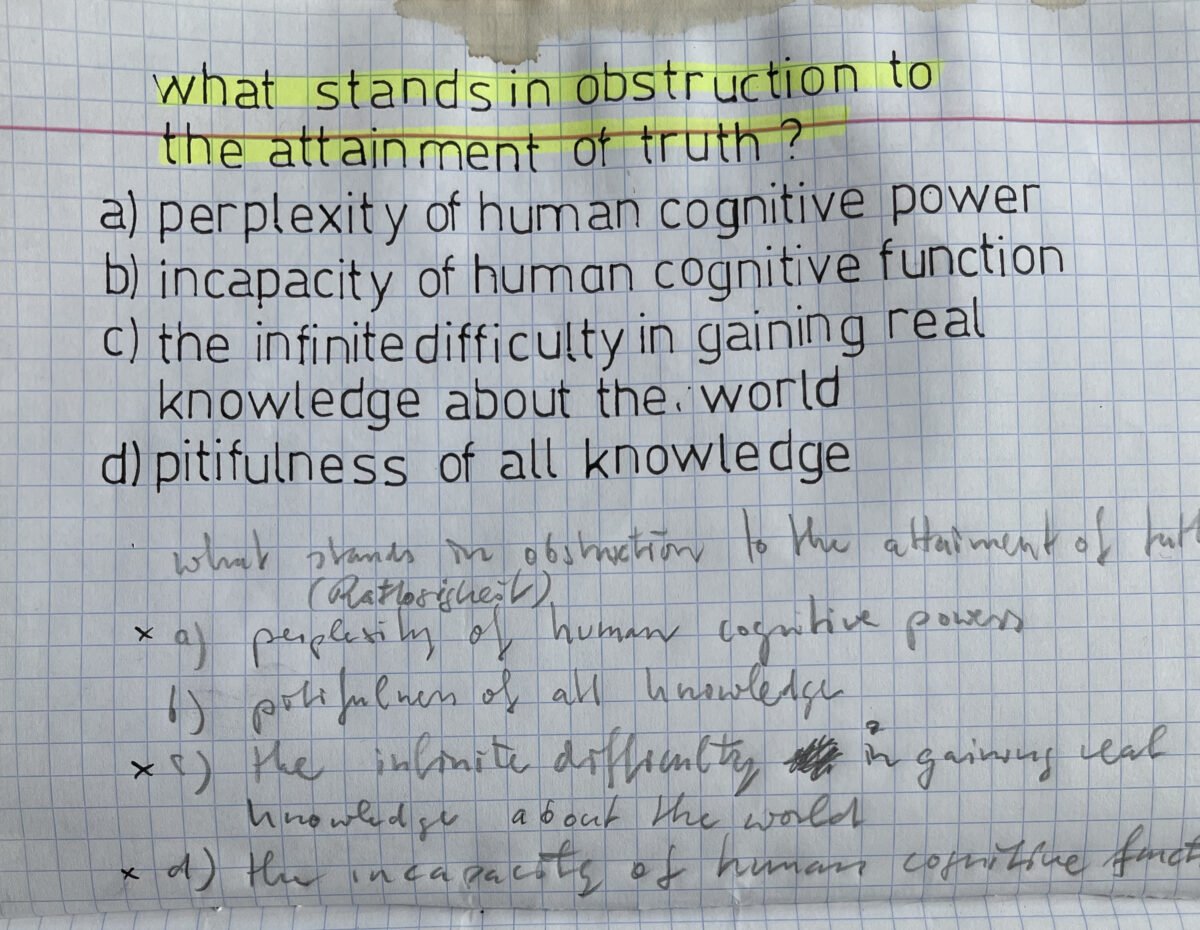 what stands in obstruction to
the attainment of truth?
a) perplexity of human cognitive power
b) incapacity of human cognitive function
c) the infinite difficulty in gaining real
knowledge about the. world
d) pitifulness of all knowledge
what stands in obstruction to the attaiment of
(Ratlosigkeit)
x a) perplexity of human cognitive powers
b) pitifulness of all knowledge
x c) the infinite difficulty in gaining real
knowledge about the world
x d) the incapacity of human cognitive funct